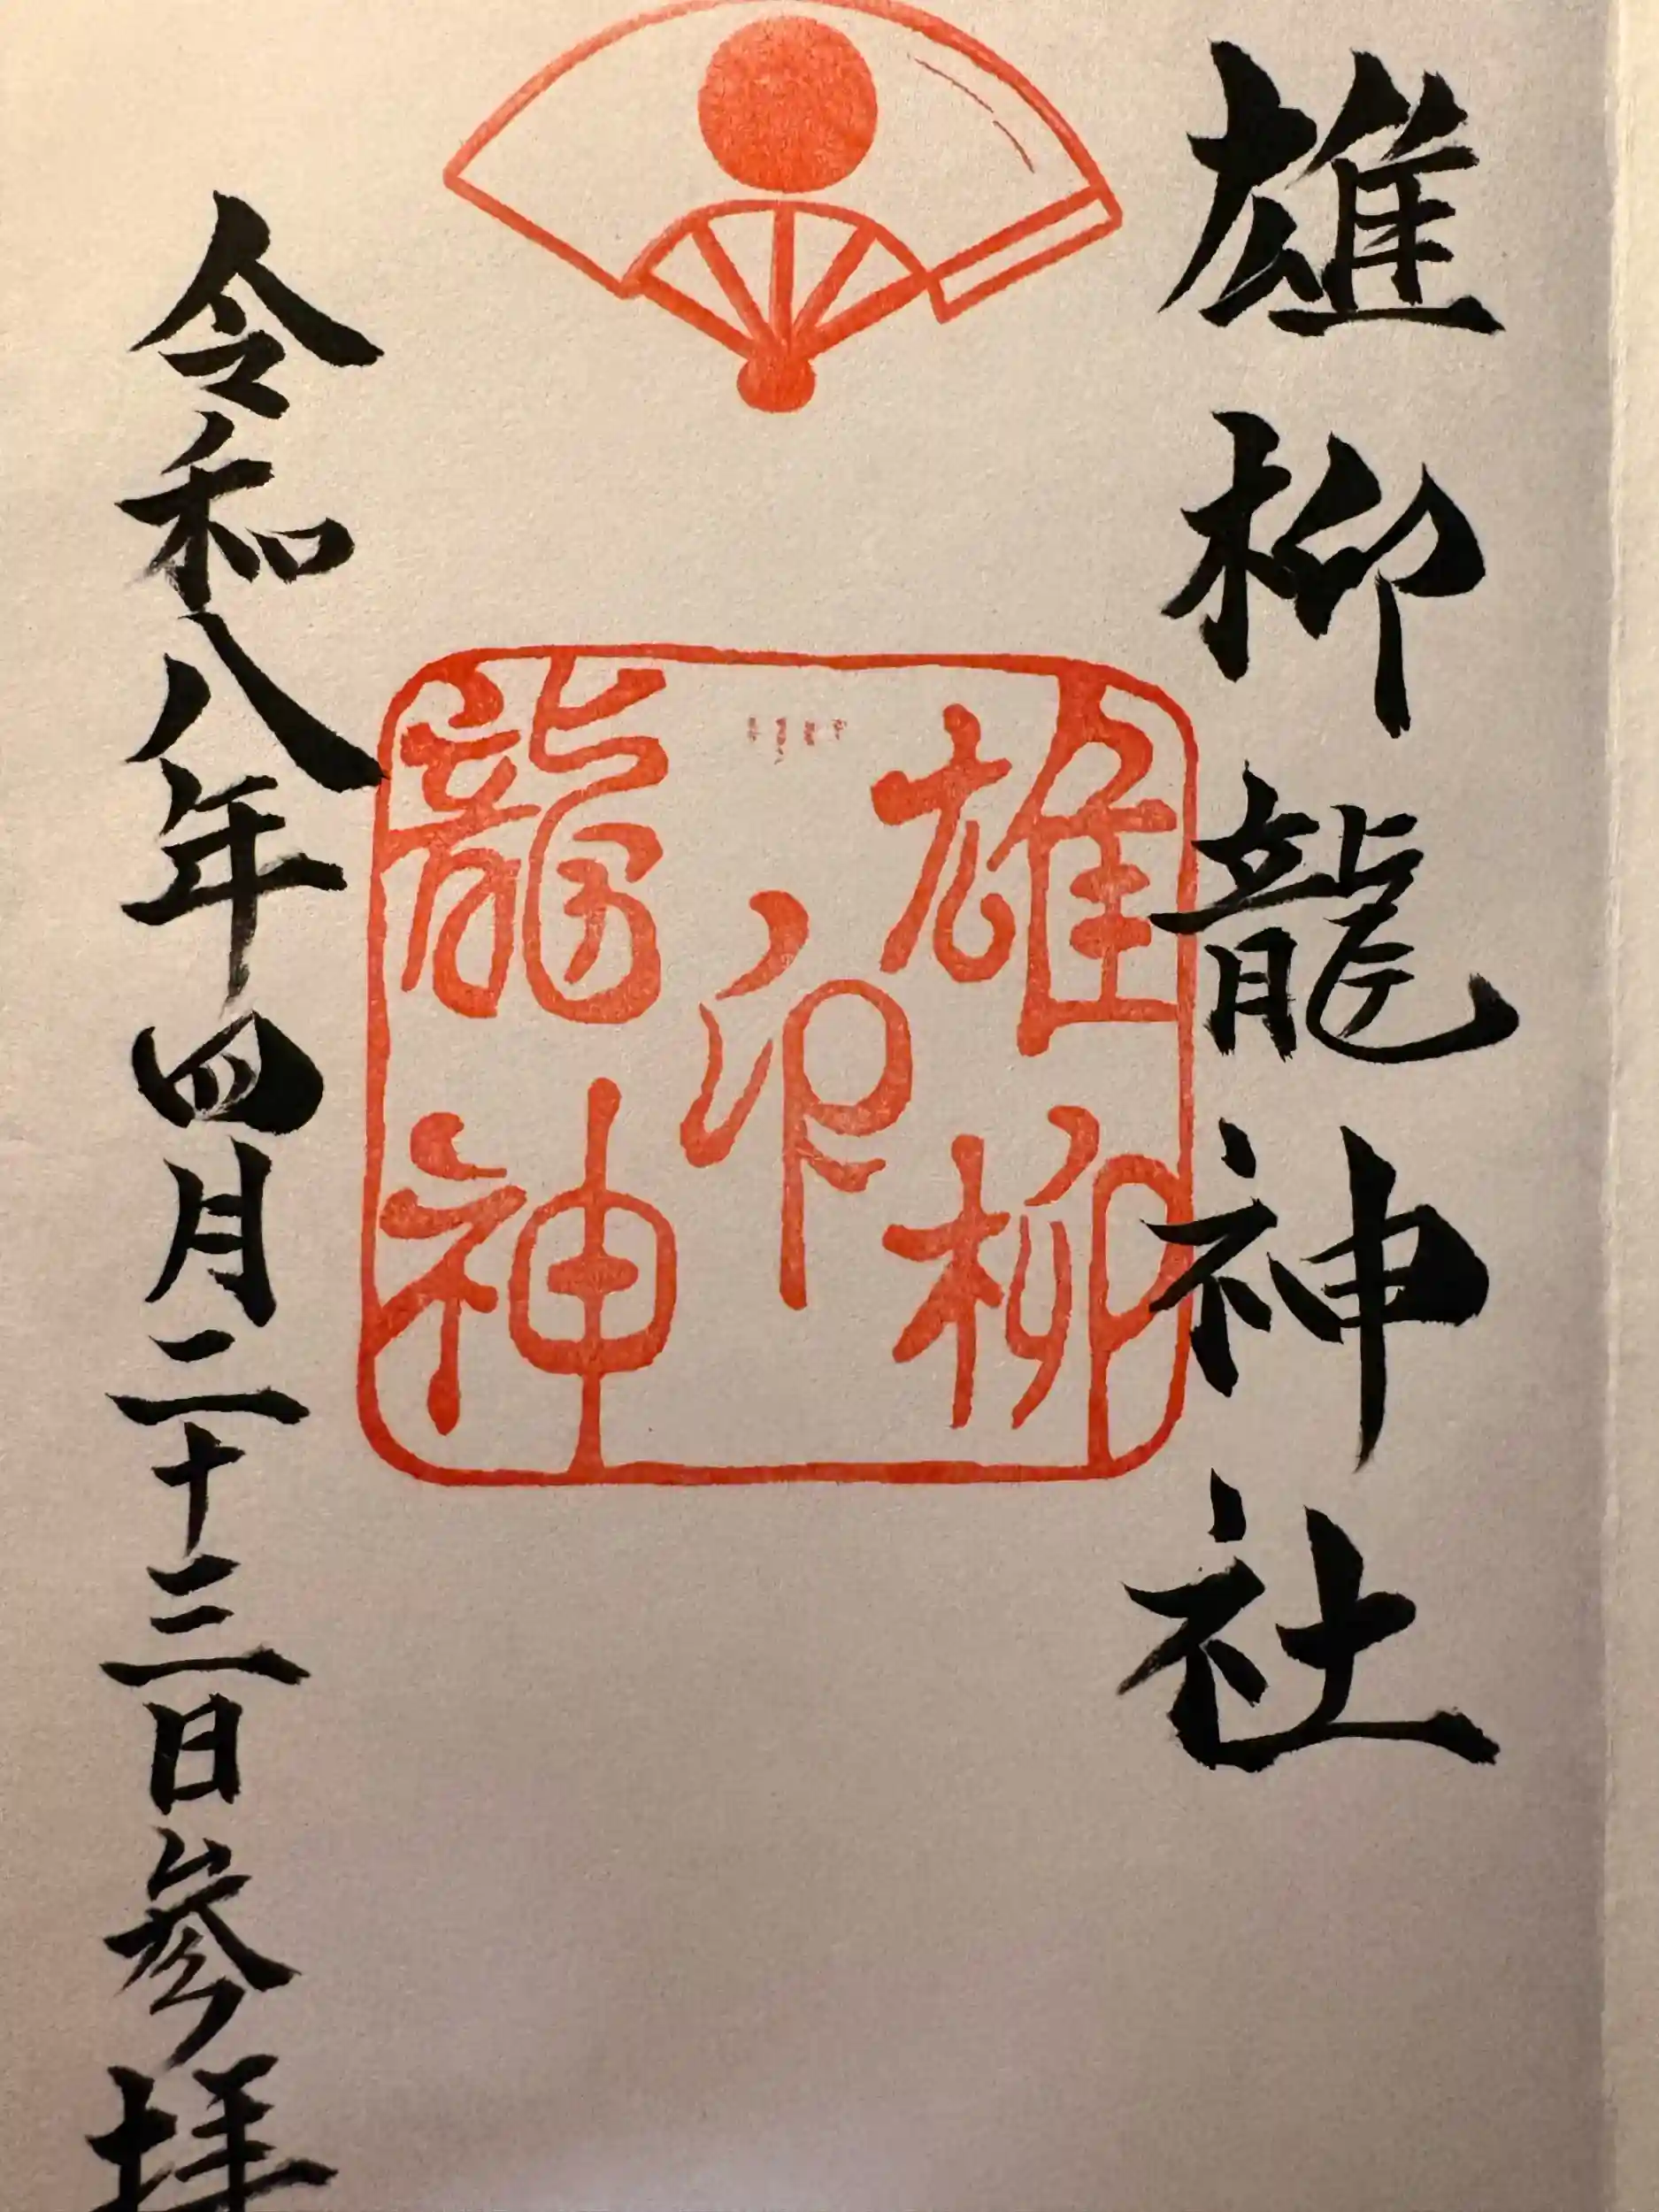 雄柳龍神社
雄柳
印
龍神
令和八年四月二十三日參拝